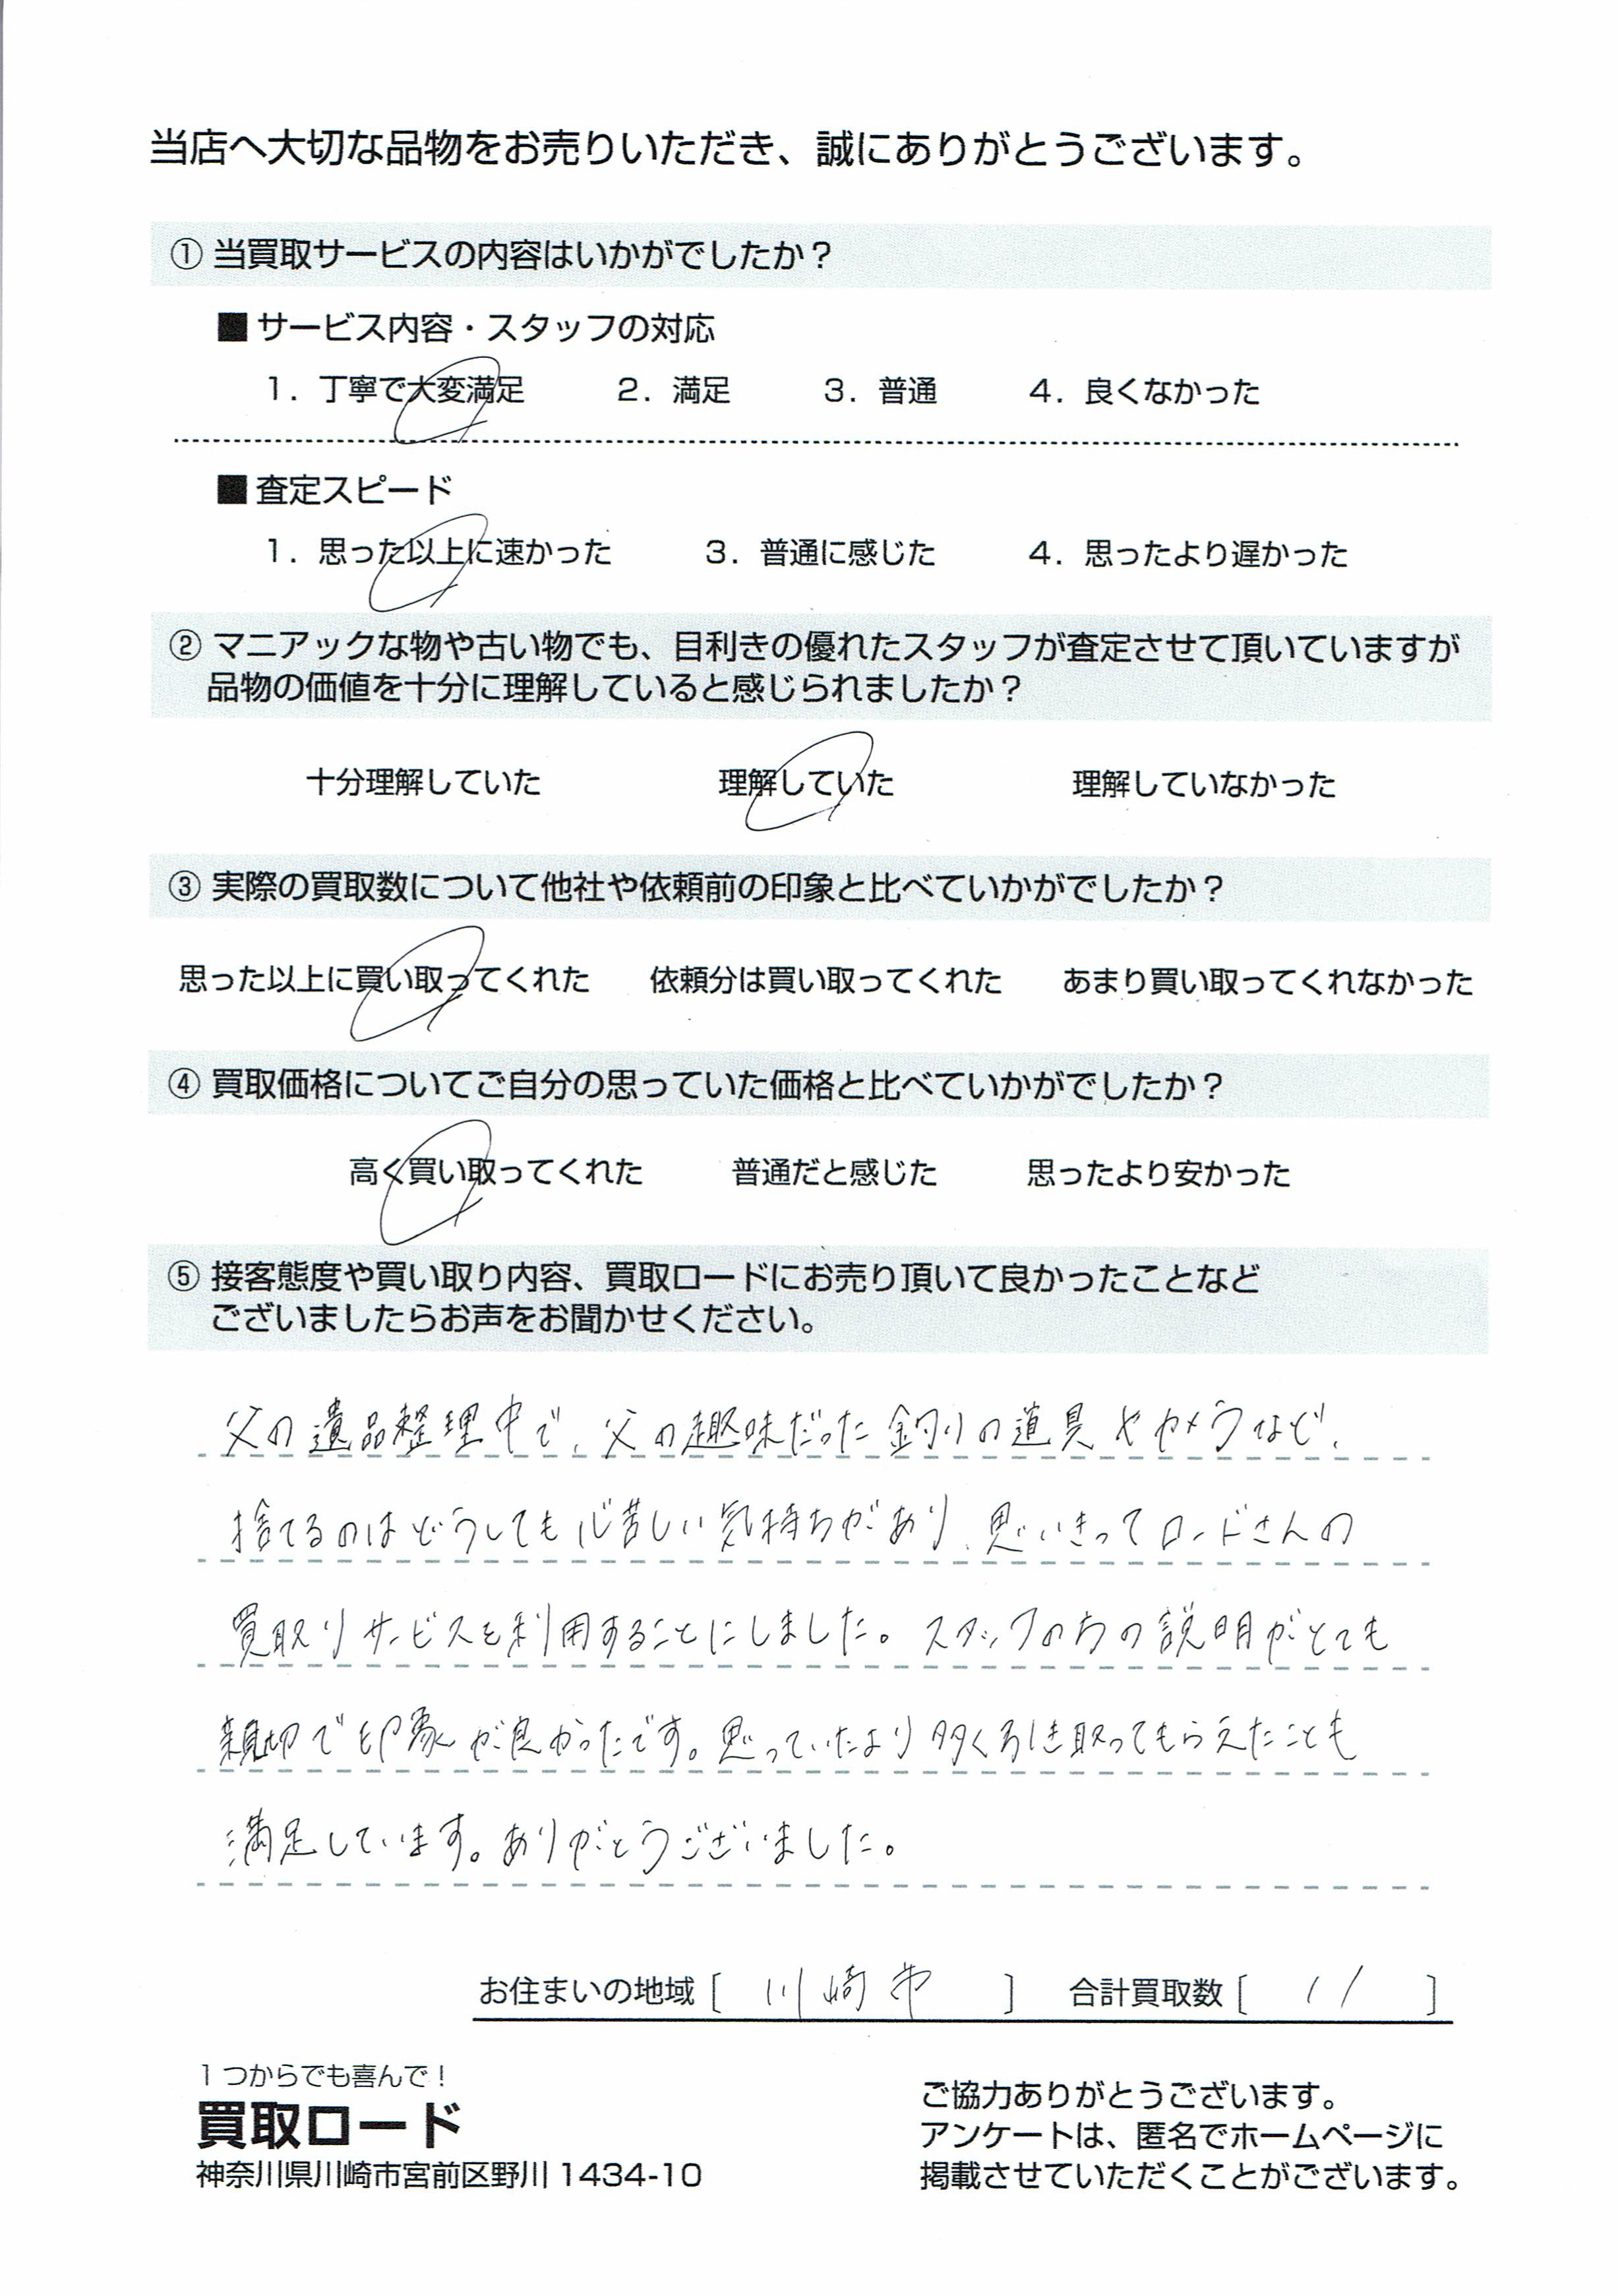 当店へ大切な品物をお売りいただき、誠にありがとうございます。
① 当買取サービスの内容はいかがでしたか？
■ サービス内容・スタッフの対応
1. 丁寧で大変満足 2. 満足 3. 普通 4. 良くなかった
■ 査定スピード
1. 思った以上に速かった 3. 普通に感じた 4. 思ったより遅かった
② マニアックな物や古い物でも、目利きの優れたスタッフが査定させて頂いていますが
品物の価値を十分に理解していると感じられましたか？
十分理解していた 理解していた 理解していなかった
③ 実際の買取数について他社や依頼前の印象と比べていかがでしたか？
思った以上に買い取ってくれた 依頼分は買い取ってくれた あまり買い取ってくれなかった
④ 買取価格についてご自分の思っていた価格と比べていかがでしたか？
高く買い取ってくれた 普通だと感じた 思ったより安かった
⑤ 接客態度や買い取り内容、買取ロードにお売り頂いて良かったことなど
ございましたらお声をお聞かせください。
父の遺品整理中で、父の趣味だった釣りの道具やカメラなど、
捨てるのはどうしても心苦しい気持ちがあり、思いきってロードさんの
買取りサービスを利用することにしました。スタッフの方の説明がとても
親切で印象が良かったです。思っていたより多く引き取ってもらえたことも
満足しています。ありがとうございました。
お住まいの地域 [ 川崎市 ] 合計買取数 [ 11 ]
1つからでも喜んで！
買取ロード
神奈川県川崎市宮前区野川 1434-10
ご協力ありがとうございます。
アンケートは、匿名でホームページに
掲載させていただくことがございます。